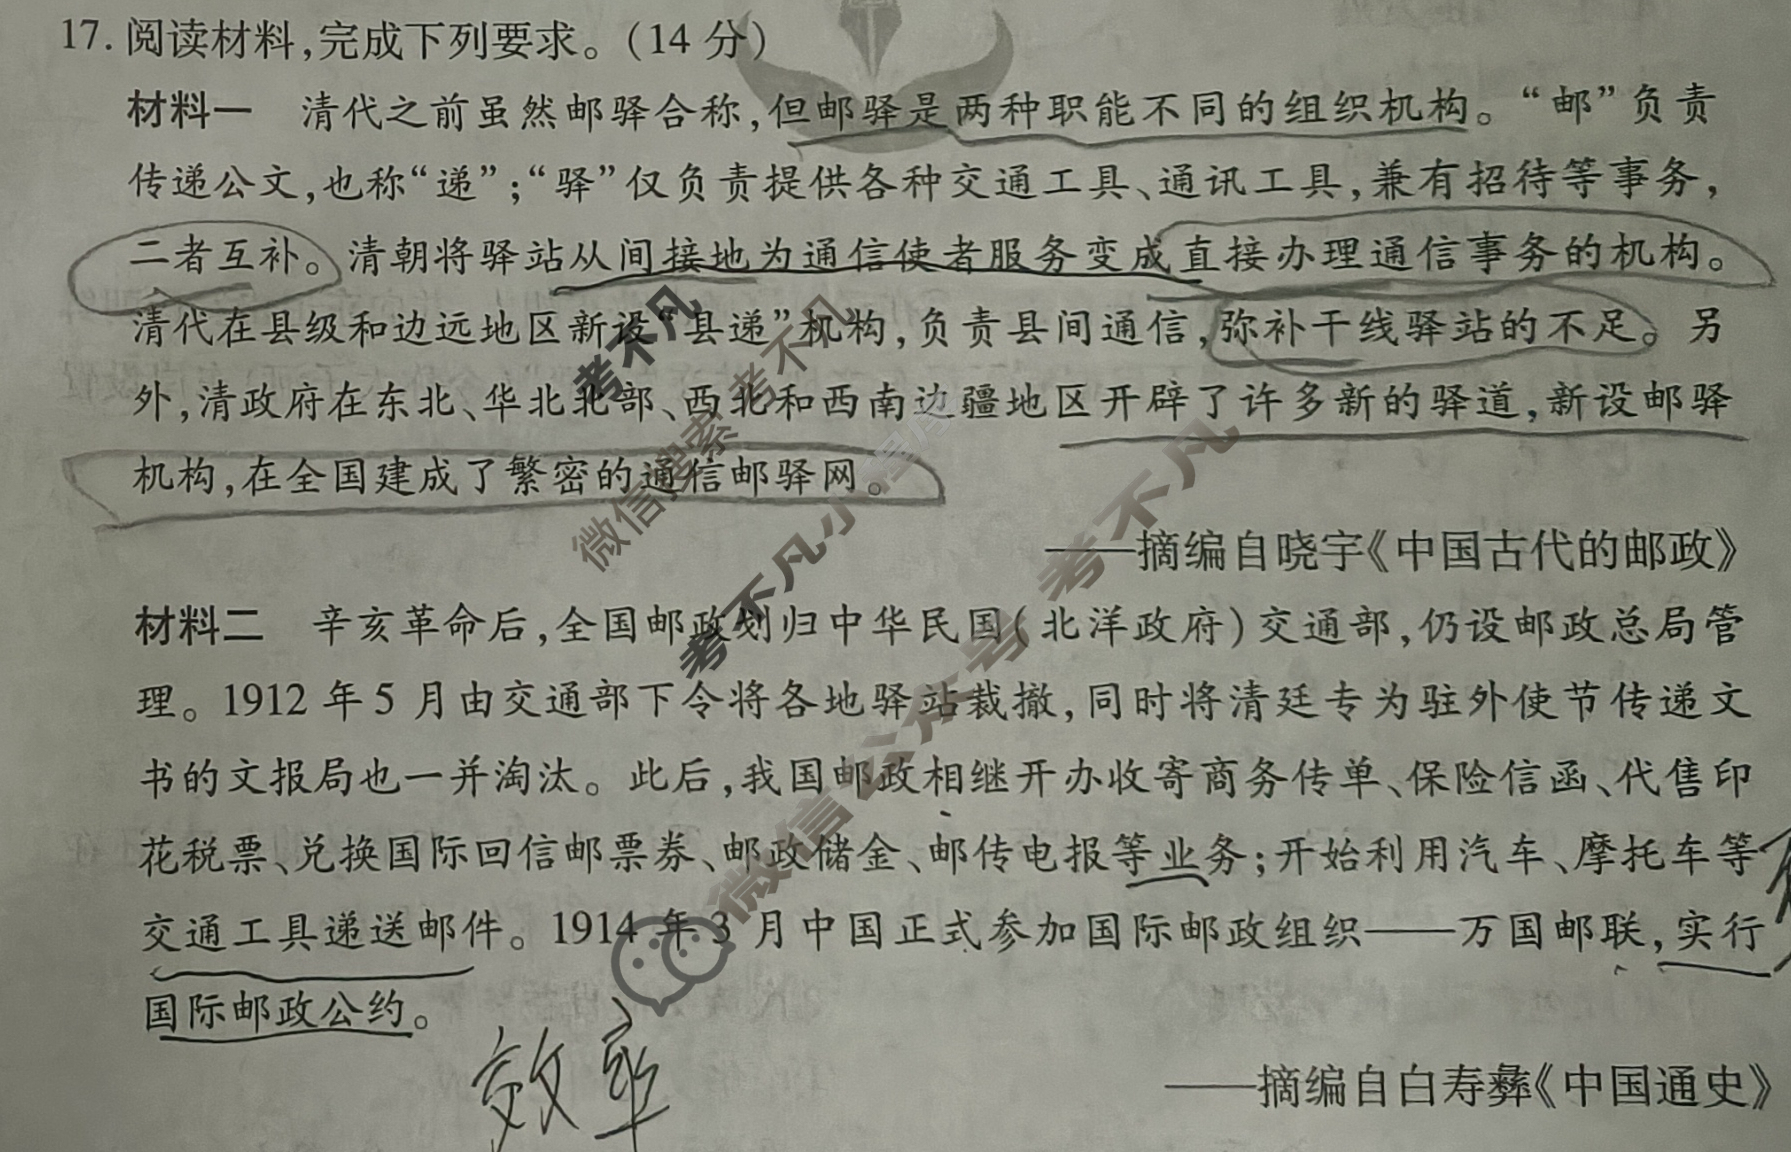 17. 阅读材料,完成下列要求。(14 分)
材料一 清代之前虽然邮驿合称,但邮驿是两种职能不同的组织机构。“邮”负责
传递公文,也称“递”;“驿”仅负责提供各种交通工具、通讯工具,兼有招待等事务,
二者互补。清朝将驿站从间接地为通信使者服务变成直接办理通信事务的机构。
清代在县级和边远地区新设“县递”机构,负责县间通信,弥补干线驿站的不足。另
外,清政府在东北、华北北部、西北和西南边疆地区开辟了许多新的驿道,新设邮驿
机构,在全国建成了繁密的通信邮驿网。
——摘编自晓宇《中国古代的邮政》
材料二 辛亥革命后,全国邮政划归中华民国(北洋政府)交通部,仍设邮政总局管
理。1912 年 5 月由交通部下令将各地驿站裁撤,同时将清廷专为驻外使节传递文
书的文报局也一并淘汰。此后,我国邮政相继开办收寄商务传单、保险信函、代售印
花税票、兑换国际回信邮票券、邮政储金、邮传电报等业务;开始利用汽车、摩托车等
交通工具递送邮件。1914 年 3 月中国正式参加国际邮政组织——万国邮联,实行
国际邮政公约。
效率
——摘编自白寿彝《中国通史》
考不凡
考不凡
微信搜索
考不凡小程序
微信公众号 考不凡